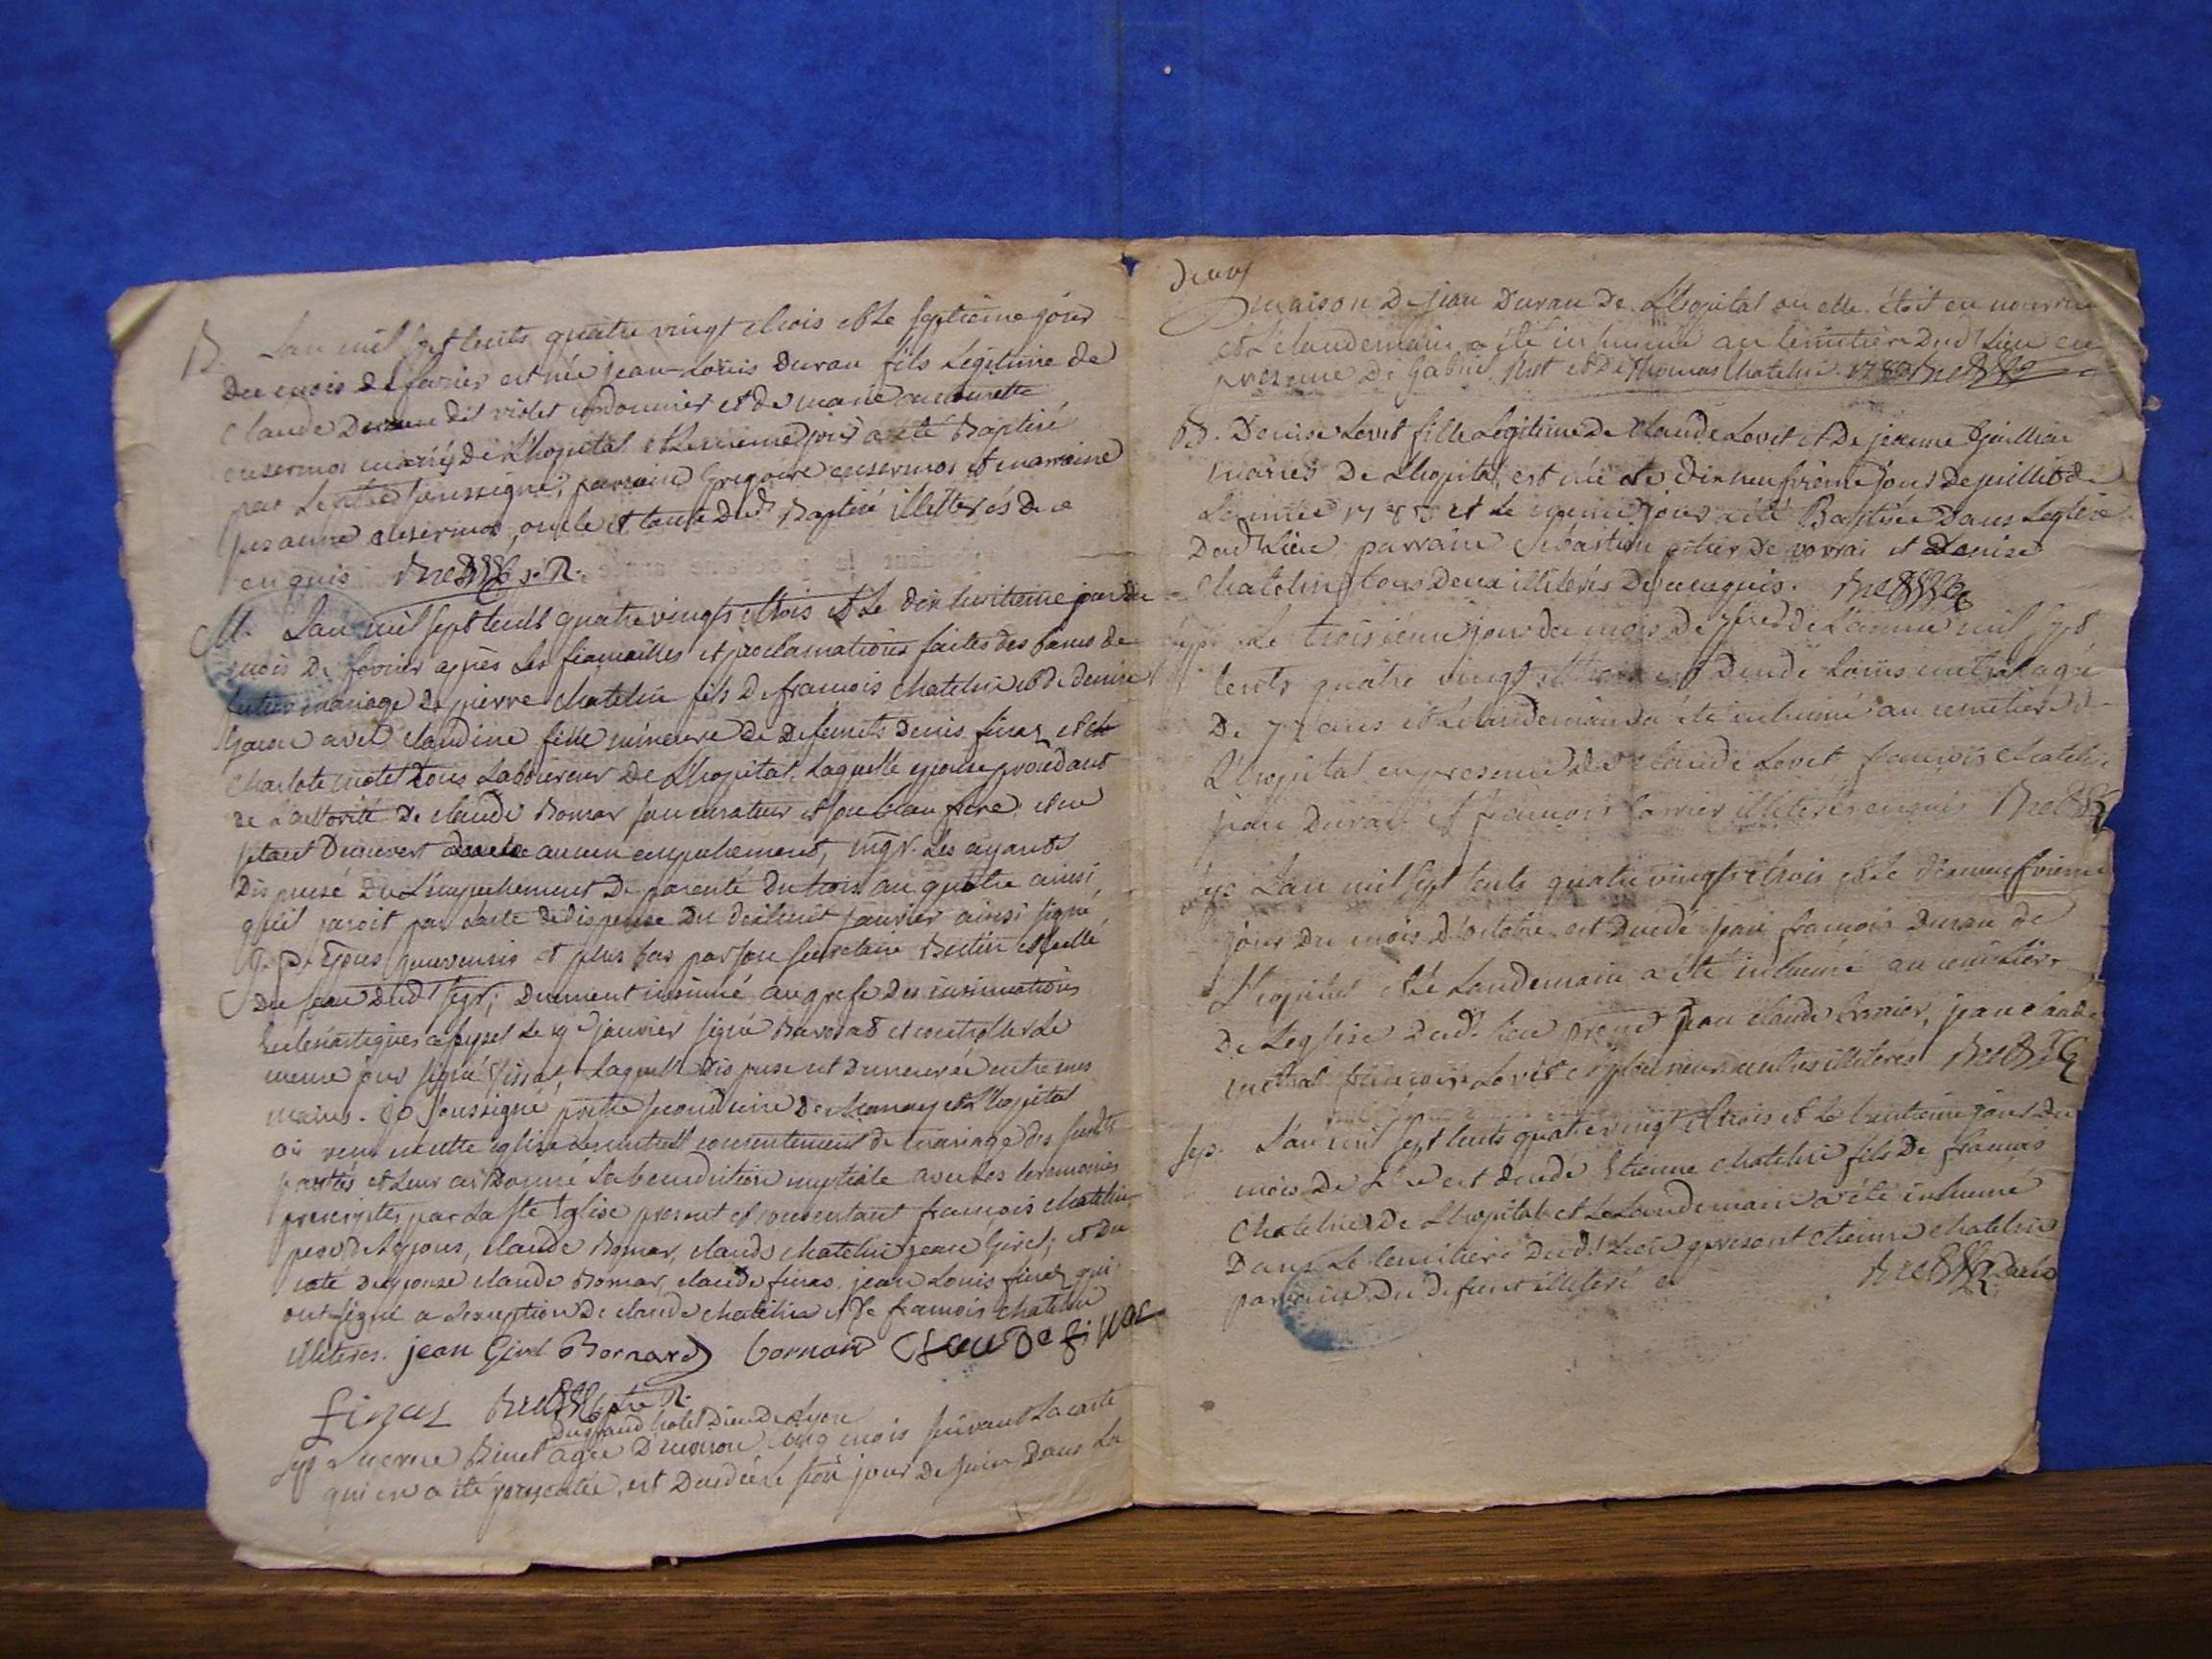 B. L'an mil sept cents quatre vingt et trois et le septieme jour
du mois de fevrier est né jean-Louis Duran fils Legitime de
Claude Duran dit violet cordonnier et de marie
ensermos mariés de L'hopital et le meme jour a été Baptisé
par Le soussigné; parrain Gregoire ensermos et marraine
ensermos, oncle et tante dud. Baptisé illetterés de ce
enquis
M. L'an mil sept cents quatre vingts et trois et le dix huitieme jour du
mois de fevrier après les fiançailles et proclamations faites des bans de
futur mariage de pierre chatelin fils de françois chatelin et de denise
avec claudine fille mineure de defunts denis finaz et de
charlote motet tous Laboureur de L'hopital. Laquelle epouse procedant
de L'autorité de claude Bornar son curateur et son beau frere et ne
s'etant decouvert aucun empechement, mgr. les ayants
dispensé de L'empechement de parenté du trois au quatre ainsi
qu'il paroit par L'acte de dispense du dix huit janvier ainsi signé
et plus bas par son secretaire et scellé
du sceau dud. sgr; duement insinué au grefe des insinuations
Eclesiastiques a seyssel le 19e janvier signé et controller le
meme jour signé Laquelle dispense est demeurée entre mes
mains. je soussigné pretre secondaire de chanay et L'hopital
ai reçu en cette eglise le mutuel consentement de mariage des susdits
parties et leur ai donné La benediction nuptiale avec les ceremonies
prescrites par La ste Eglise present et consentant françois chatelin
pere de l'epoux, claude Bornar, claude chatelin jean Girel; et du
coté de l'epouse claude Bornar, claude finas, jean Louis finaz qui
ont signé a L'exception de claude chatelin et de françois chatelin
illiteres. jean Girel Bornard bornard Claude finas
finaz
du grand hotel Dieu de Lyon
sep. Binet agée D'environ cinq mois suivant La carte
qui en a été presentée, est decedée le jour de juin dans La
deux
maison de jean Duran de L'hopital ou elle étoit en nourrice
et le lendemain a été inhumée au cimetière dud. Lieu en
presence de Gabriel et de Thomas chatelin. 1783
B. Denise Lovet fille Legitime de claude Lovet et de jeanne Guillian
mariés de L'hopital, est née le dix neufvieme jour de juillet de
L'année 1783 et le meme jour a été Baptisée dans L'eglise
dud. Lieu parrain sebastien de vovrai et Denise
Chatelin tous deux illiterés de ce enquis.
sep. Le troisieme jour du mois de 7bre de L'année mil sept
cents quatre vingt et trois est decedé Louis metral agé
de 77 ans et le lendemain a été inhumé au cimetière de
L'hopital en presence de claude Lovet françois chatelin
jean Duran et françois illiterés enquis
sep. L'an mil sept cents quatre vingts et trois et le dix neufvieme
jour du mois d'octobre est decedé jean françois Duran de
L'hopital et le Lendemain a été inhumé au cimetiere
de L'eglise dud. lieu present jean claude jean claude
metral françois Lovet et plusieurs autres illiterés
sep. L'an mil sept cents quatre vingt et trois et le trentieme jour du
mois de est decedé Etienne chatelin fils de françois
Chatelin de L'hopital et Le Lendemain a été inhumé
Dans le cimitiere dud. Lieu present etienne chatelin
parrain du defunt illiteré